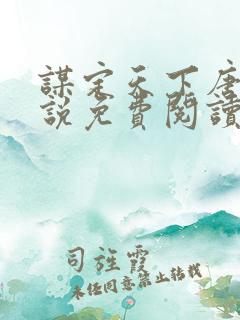 謀定天下唐
說免費閱讀
司旌霞
未经同意禁止转载